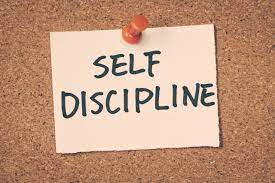 SELF
DISCIPLINE